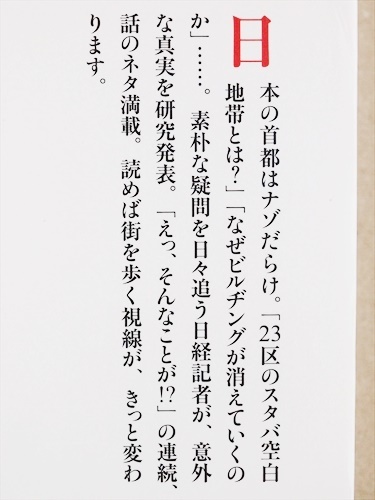 日本の首都はナゾだらけ。「23区のスタバ空白
地帯とは？」「なぜビルヂングが消えていくの
か」……。素朴な疑問を日々追う日経記者が、意外
な真実を研究発表。「えっ、そんなことが!?」の連続、
話のネタ満載。読めば街を歩く視線が、きっと変わ
ります。